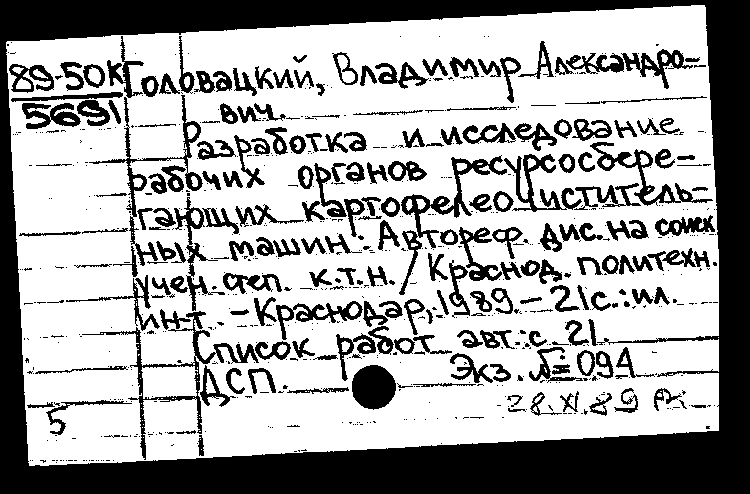 89-50К Головацкий, Владимир Александро-
5691 вич.
Разработка и исследование
рабочих органов ресурсосбере-
гающих картофелеочиститель-
ных машин: Автореф. дис. на соиск
учен. степ. к.т.н. / Краснод. политехн.
ин-т. - Краснодар, 1989. - 21с.: ил.
Список работ авт.: с. 21.
ДСП. Экз. № 094
28.XI.89
5